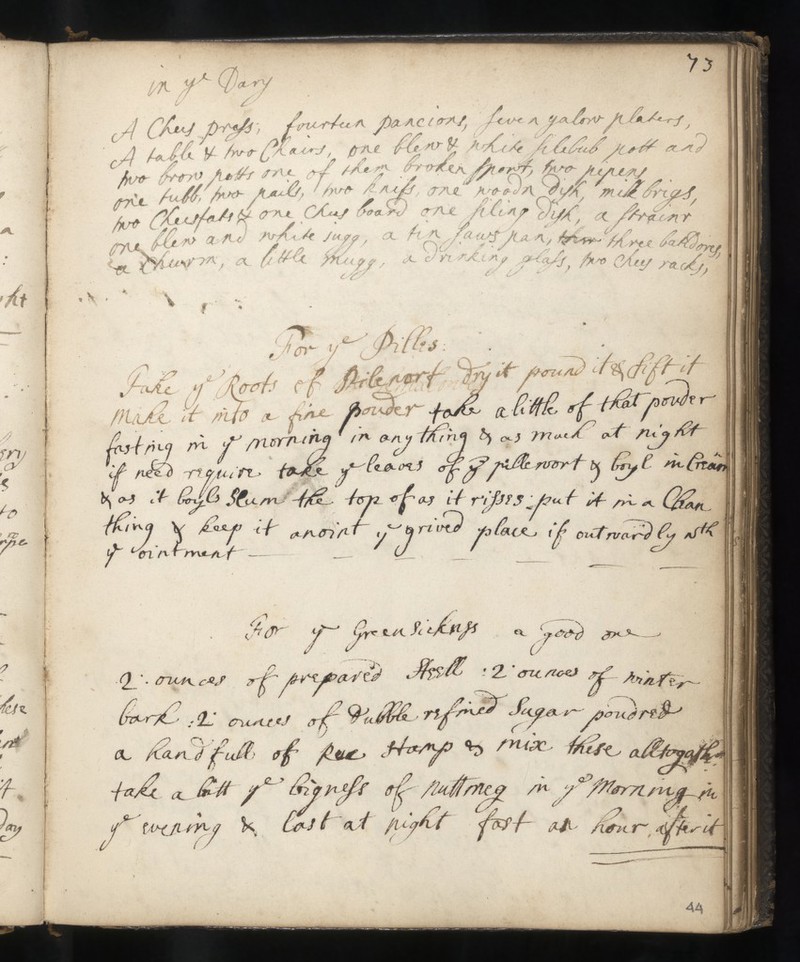 73
in ye Dary
A Chees press, fourteen pancions, seven yalow platers,
A table & two Chairs, one blew & white silebub pott and
two brow potts one of them broken spout, two pipens
one tubb, two pails, two knifs, one woodn dish, milk brigs,
two Cheesfats & one Chees board one siling dish, a strainr
one blew and white jugg, a tin saws pan, three bakdores,
a Churm, a little mugg, a drinking glass, two Chees racks,
For ye Pilles:
Take ye Roots of Pilewort dry it pound it & sift it
make it into a fine pouder take a little of that pouder
fasting in ye morning in any thing & as much at night
if need require take ye leaves of ye pillewort & boyl in Cream
& as it boyls Scum the top of as it risses put it in a Clean
thing & keep it anoint ye grived place if outwardly wth
ye ointment
For ye Green Sickness a good one
2 ounces of prepared Steell : 2 ounces of winter
bark : 2 ounces of dubble refined Sugar poudred
a handfull of Rue stamp & mix these alltogather
take a bitt ye bigness of nuttmeg in ye Morning in
ye evening & Last at night fast an hour after it
44